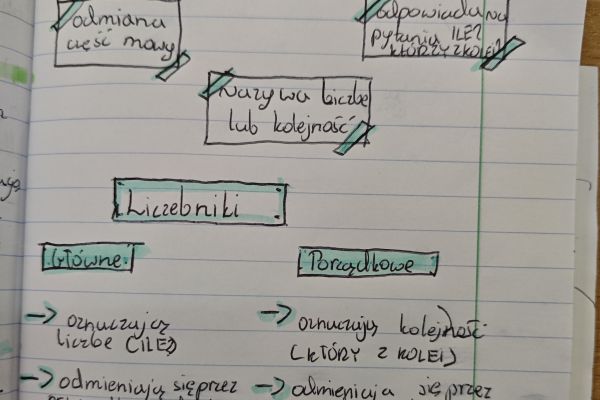 odmiana
część mowy
odpowiada na
pytania ILE?
KTÓRY Z KOLEI?
Nazywa liczbę
lub kolejność
Liczebniki
Główne
Porządkowe
→ oznaczają
liczbę (ILE?)
→ oznaczają kolejność
(KTÓRY Z KOLEI)
→ odmieniają się przez
→ odmieniają się przez